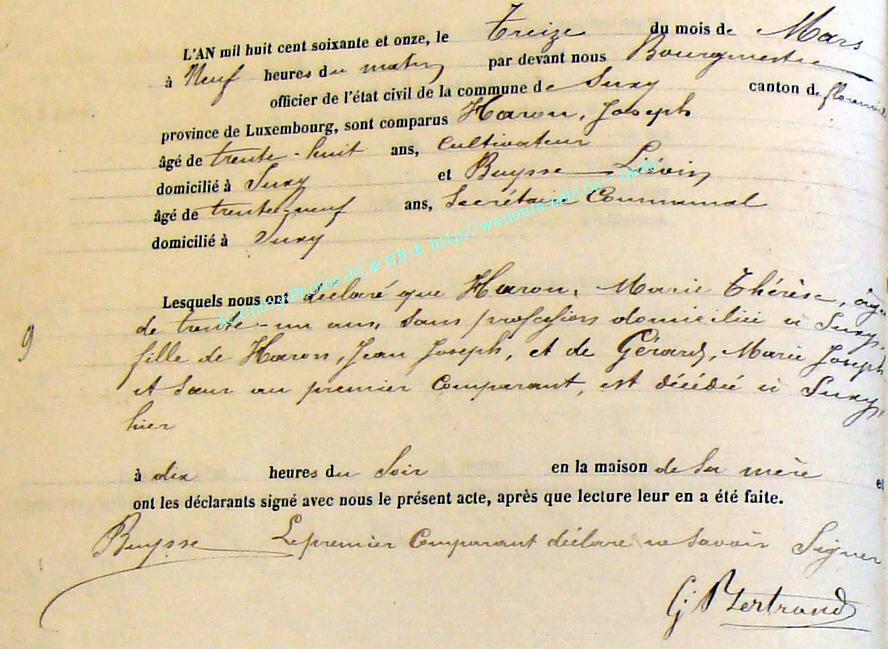 L'AN mil huit cent soixante et onze, le treize du mois de Mars
à Neuf heures du matin par devant nous Bourgmestre
officier de l'état civil de la commune de Suxy canton de
province de Luxembourg, sont comparus Haron, Joseph
âgé de trente-huit ans, Cultivateur
domicilié à Suxy et Buysse Liévin
âgé de trente-neuf ans, Secrétaire Communal
domicilié à Suxy
Lesquels nous ont déclaré que Haron, Marie Thérèse, âgée
9
de trente-un ans, sans profession domiciliée à Suxy,
fille de Haron, Jean Joseph, et de Gérard, Marie Joseph
et sœur au premier Comparant, est décédée à Suxy,
hier
à dix heures du Soir en la maison de Sa mère et
ont les déclarants signé avec nous le présent acte, après que lecture leur en a été faite.
Buysse Le premier Comparant déclare ne savoir Signer
Bertrand